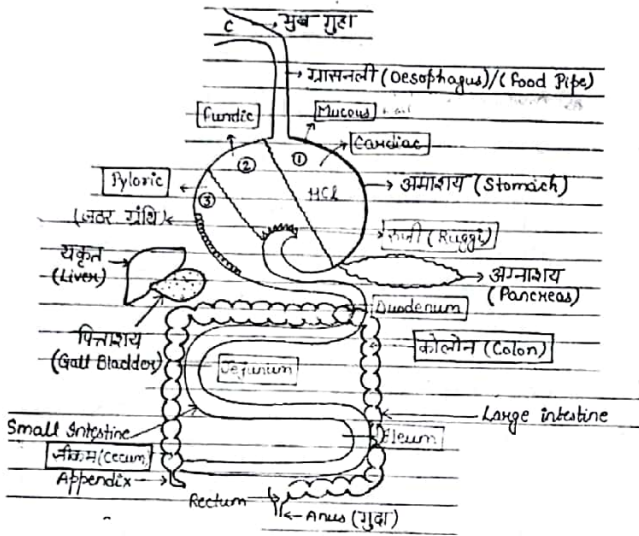 C → मुख गुहा
ग्रासनली (Oesophagus)/(Food Pipe)
Fundic
Mucous
Cardiac
②
①
Pyloric
③
HCl
आमाशय (Stomach)
(जठर ग्रंथि)
रुजी (Ruggi)
यकृत
(Liver)
अग्नाशय
(Pancreas)
Duodenum
पित्ताशय
(Gall Bladder)
कोलोन (Colon)
Jejunum
Large intestine
Small Intestine
Ileum
सीकम (Cecum)
Appendix
Rectum
Anus (गुदा)